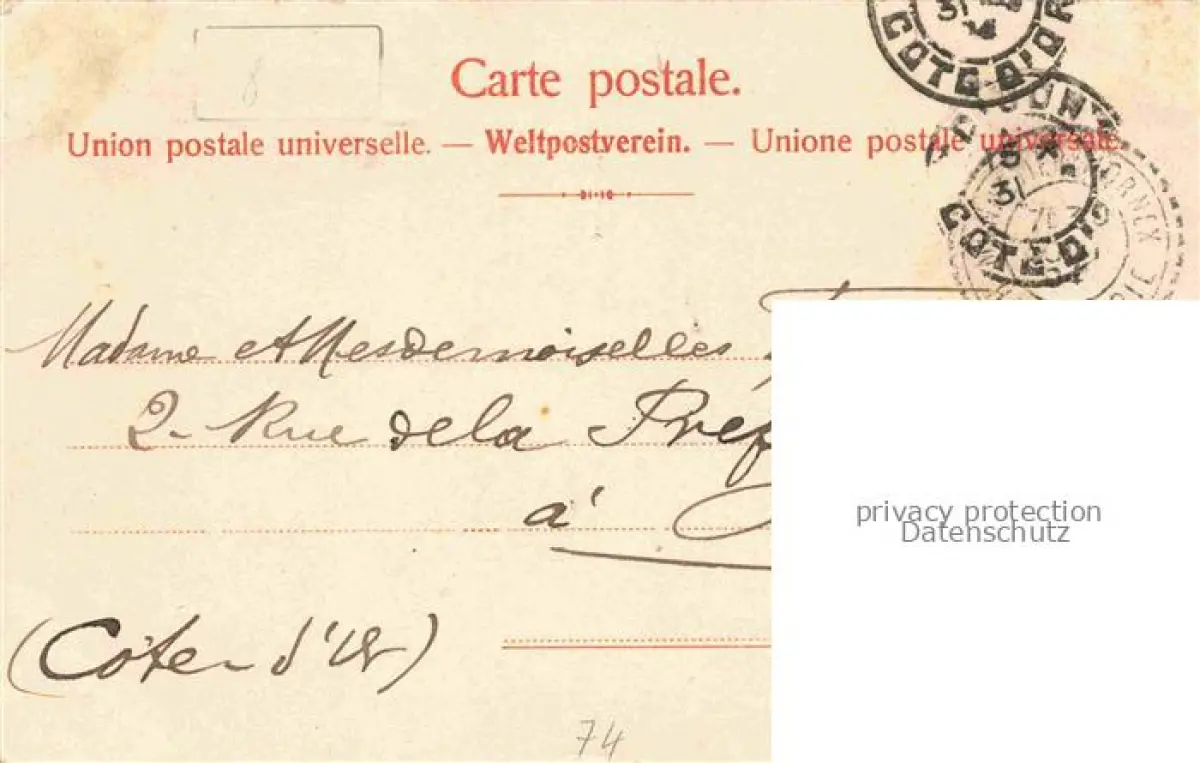 8
Carte postale.
Union postale universelle. — Weltpostverein. — Unione postale universale.
31
COTE D'OR
31
COTE D'O
ORNEX
Madame et Mesdemoiselles
2 - Rue de la Préf
à
(Côte-d'Or)
privacy protection
Datenschutz
74